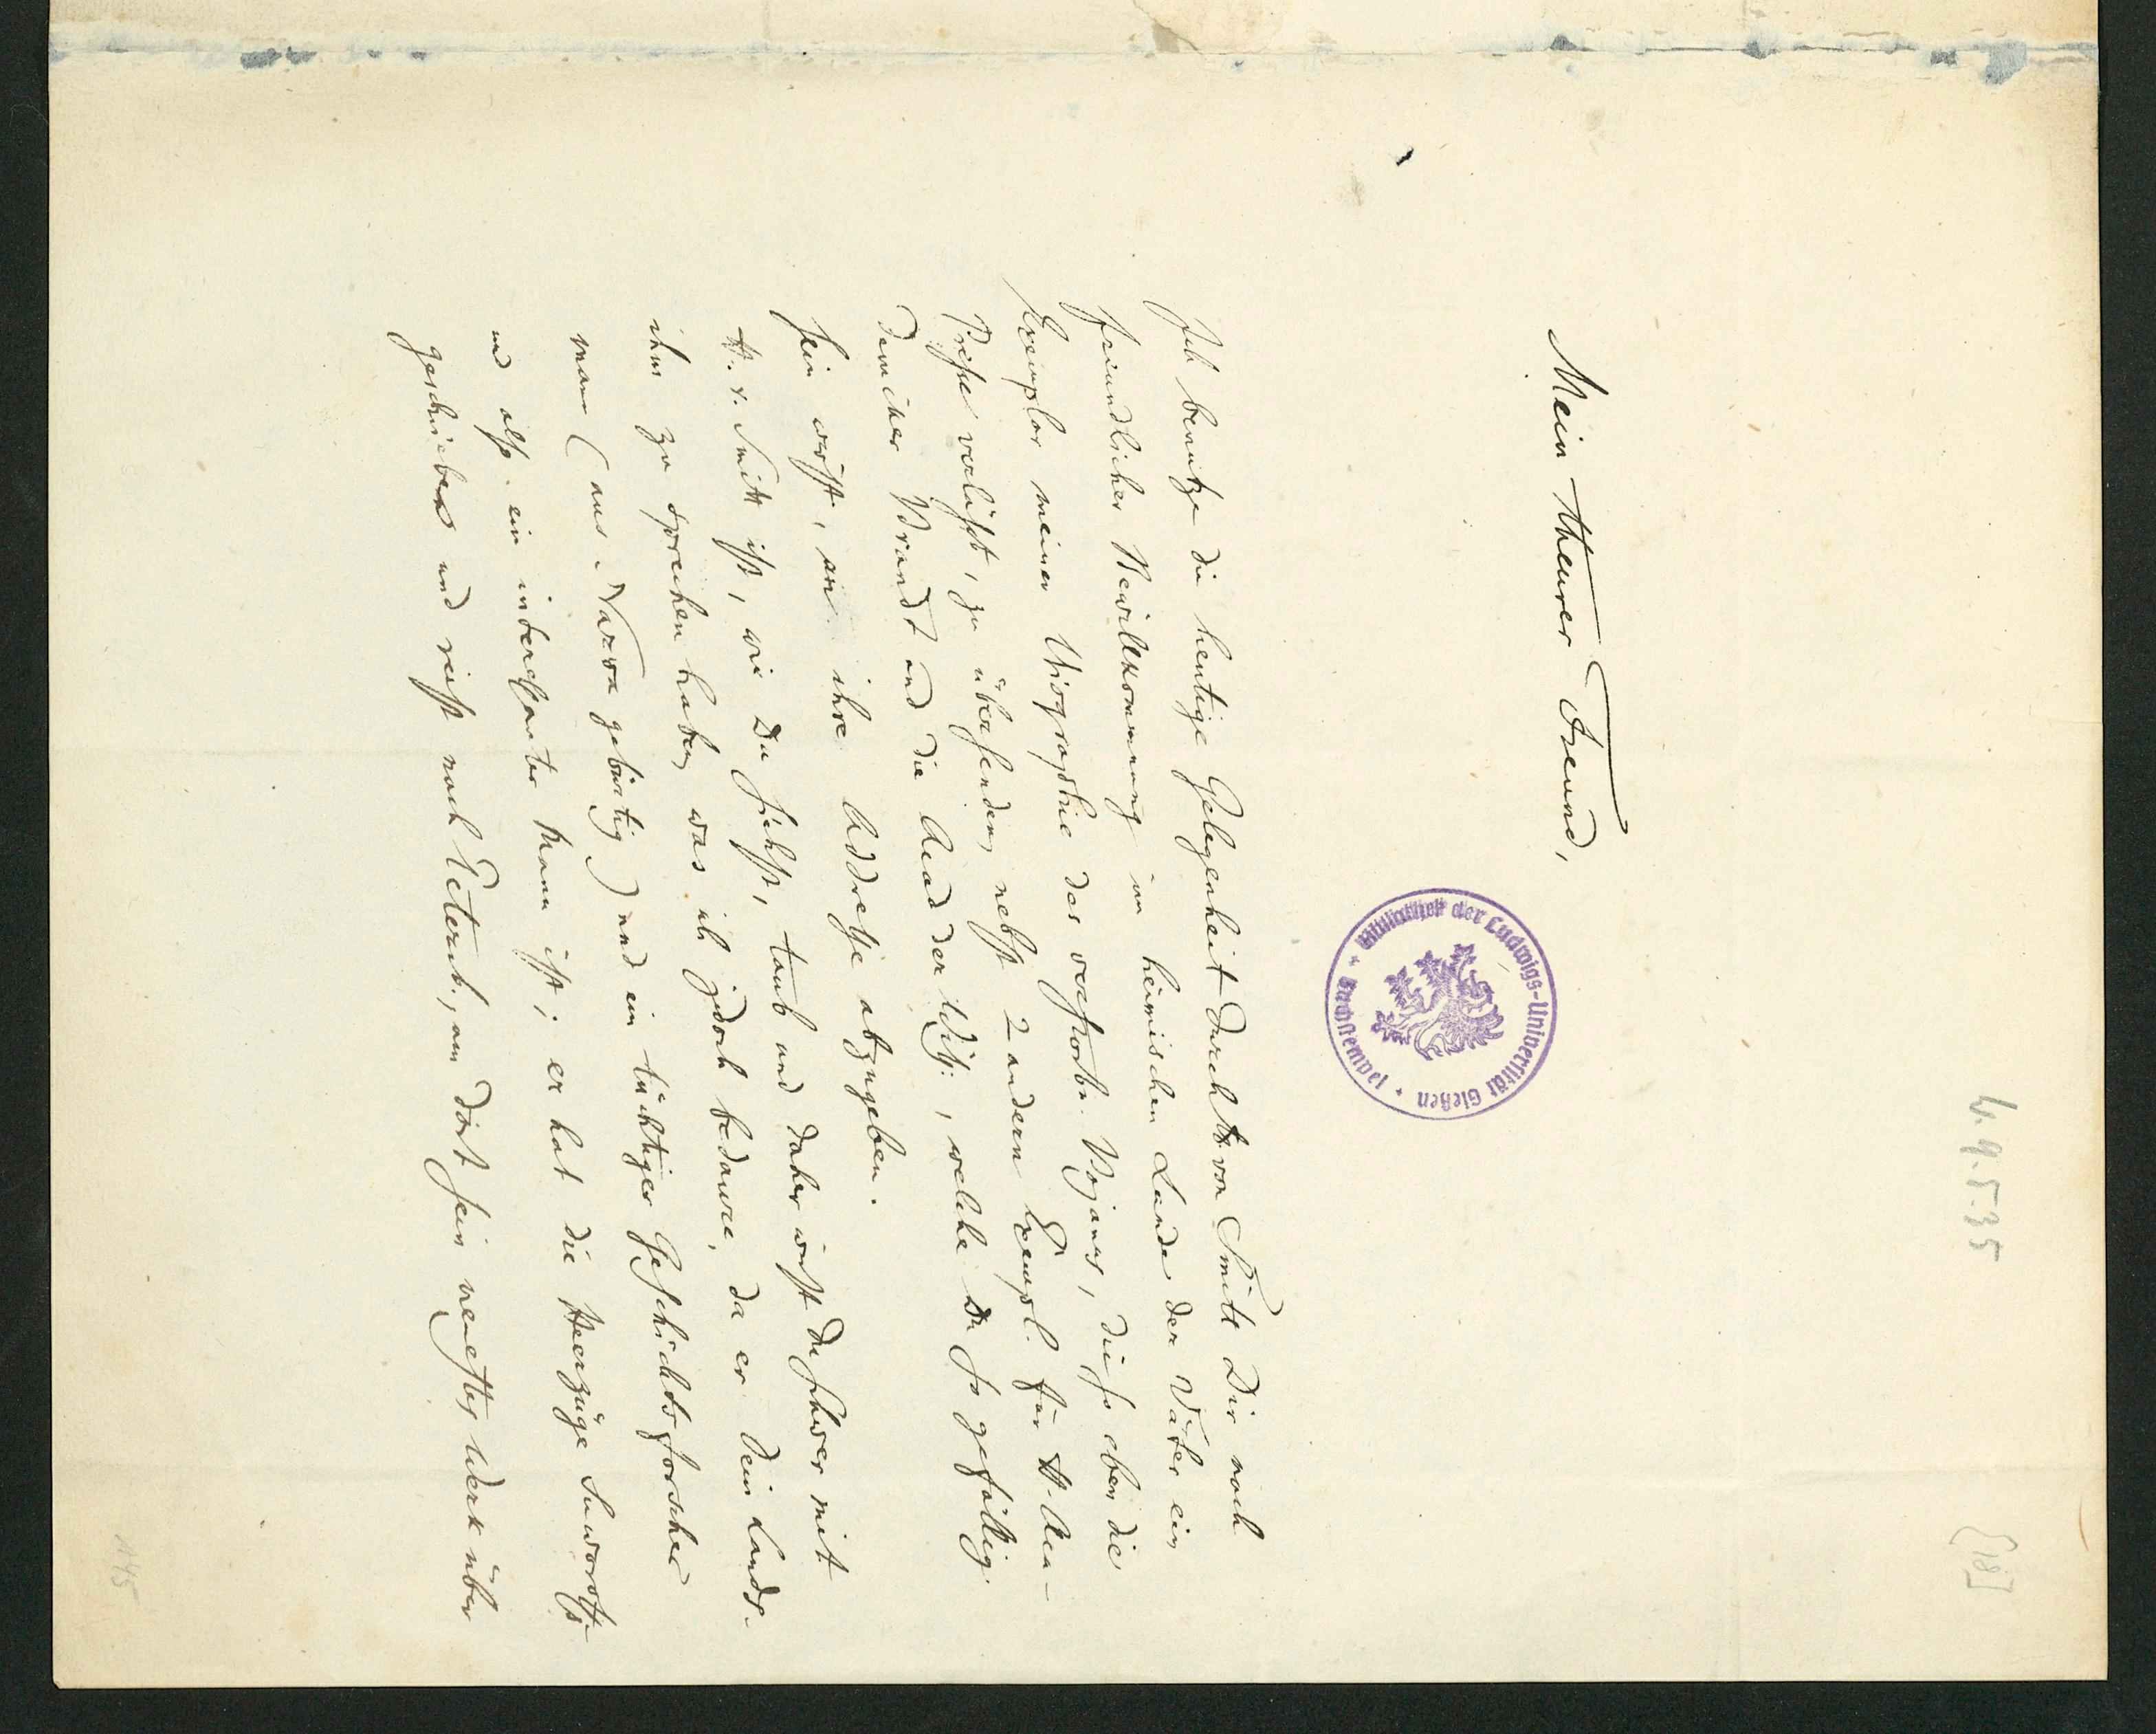 4.9.5.35
[18]
Mein theurer Freund,
Bibliothek der Ludwigs-Universität Gießen
Buchstempel
Ich benutze die heutige Gelegenheit durch H. von Smitt Dir nach
freundlicher Bewillkommnung im heimischen Lande der Väter ein
Exemplar meiner Biographie des verstorb. Bojanus, die so eben die
Presse verläßt, zu übersenden, nebst 2 andern Exempl. für H. Aca-
demiker Brandt und die Acad der Wiß:, welche Du so gefällig
sein wirst, an ihre Addresse abzugeben.
H. v. Smitt ist, wie Du siehst, taub und daher wirst Du schwer mit
ihm zu sprechen haben, was ich jedoch bedaure, da er Dein Lands-
mann (aus Narva gebürtig) und ein tüchtiger Geschichtsforscher
und alß ein interessanter Mann ist; er hat die Heerzüge Suworoffs
geschrieben und reist nach Petersb., um dort sein neuestes Werk über
145